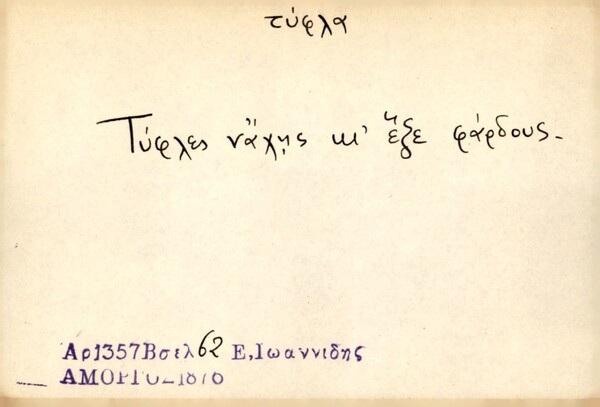 τύφλα
Τύφλες νἄχῃς κι' ἕξε φάρδους.
Αρ1357Βσελ62 Ε,Ιωαννιδης
ΑΜΟΡΓΟΣ1876